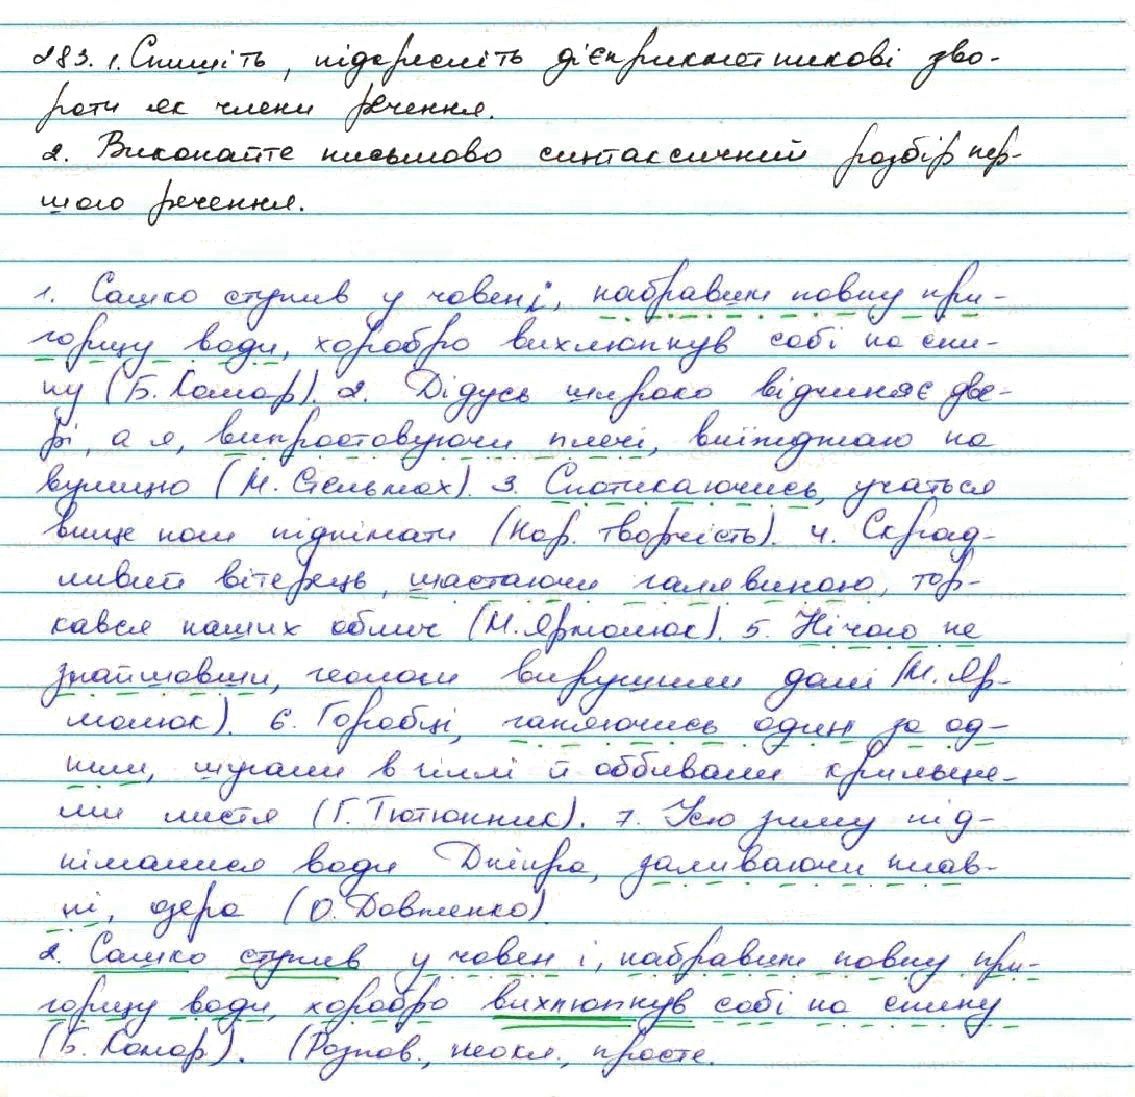 283. 1. Спишіть, підкресліть дієприкметникові зво-
роти як члени речення.
2. Виконайте письмово синтаксичний розбір пер-
шого речення.
1. Сашко ступив у човен і, набравши повну при-
горщу води, хоробро вихлюпнув собі на спи-
ну (Б. Комар). 2. Дідусь широко відчиняє две-
рі, а я, випростовуючи плечі, виїжджаю на
вулицю (М. Стельмах). 3. Спотикаючись, учаться
вище ноги піднімати (Нар. творчість). 4. Скрад-
ливий вітерець, шастаючи галявиною, тор-
кався наших облич (М. Ярмолюк). 5. Нічого не
знайшовши, геологи вирушили далі (М. Яр-
молюк). 6. Горобці, ганяючись один за од-
ним, шугали в гіллі й оббивали крильце-
ми листя (Г. Тютюнник). 7. Усю зиму під-
німалися води Дніпра, заливаючи плав-
ні, озера (О. Довженко).
2. Сашко ступив у човен і, набравши повну при-
горщу води, хоробро вихлюпнув собі на спину
(Б. Комар). (Розпов., неокл., просте.